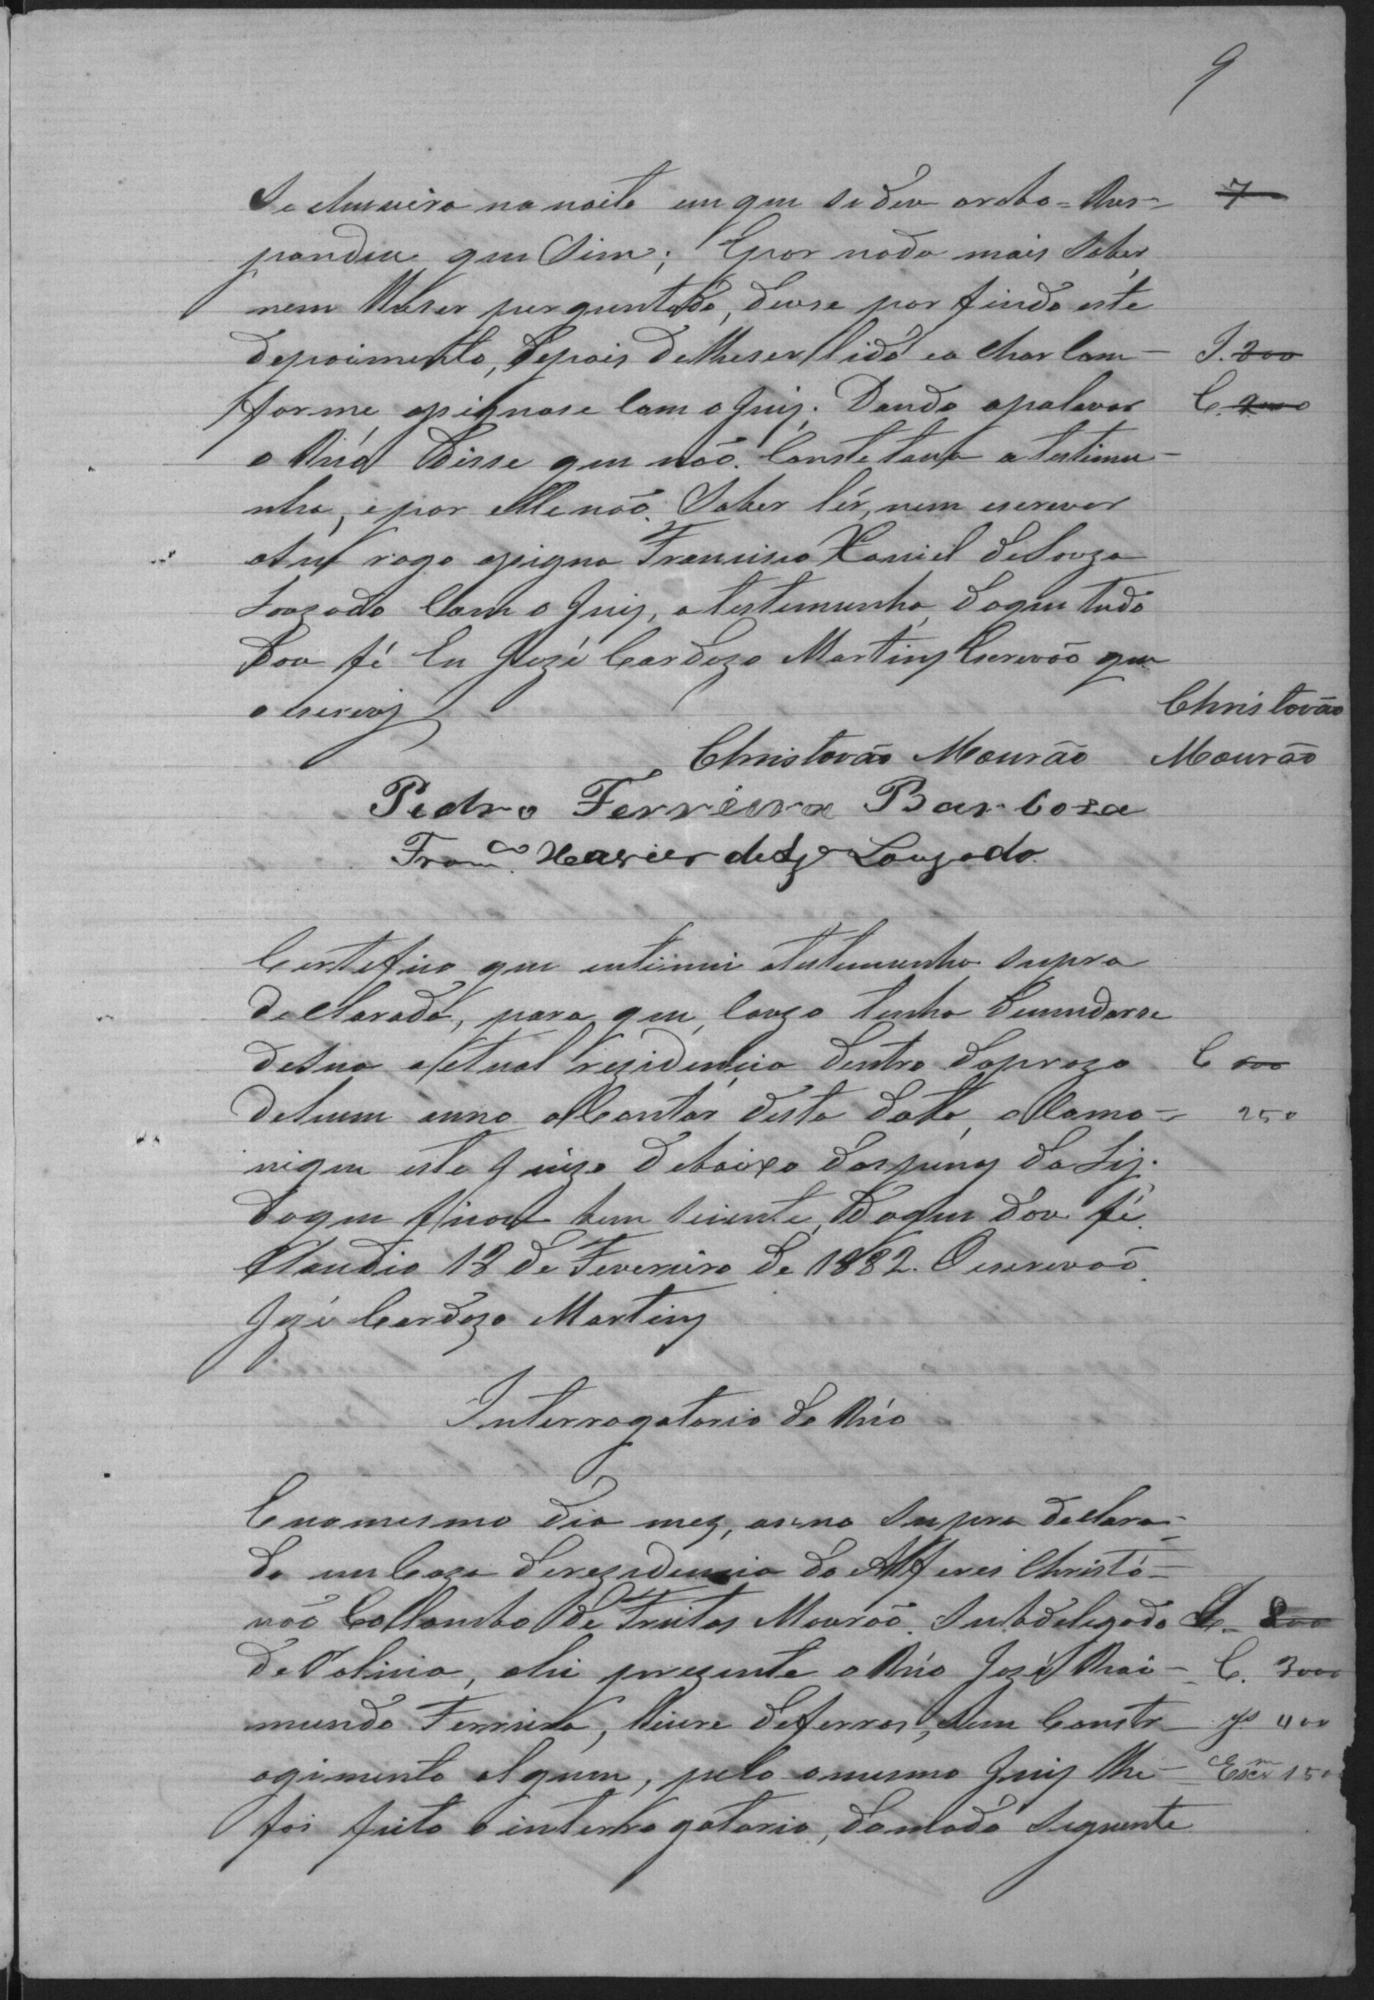 9
Se chuveiro na noite em que se deu oroubo = Res-
7
pondeu que Sim; Epor nada mais Saber
nem lheser perguntado, deuse por findo este
depoimento, depois delheser lido eo achar com-
J. 200
forme, assignase Com o Juiz. Dando apalavar
C.
o Réo Disse que não Contestava a testimu-
nha, e por elle não Saber lér, nem escrever
aseu rogo assigna Francisco Xaviel deSouza
Louzada Com o Juiz, a testemunha, doque tudo
Dou fé Eu Jozé Cardozo Martins Escrevão que
o escrevy
Christovão
Christovão Mourão
Mourão
Pedro Ferreira Barboza
Franco. Xavier de Sza Louzada
Certefico que entimei atestemunha supra
declarada, para que, Cauzo tenha demudarse
desua actual rezidencia dentro doprazo
C
dehum anno aContar desta data, o Como-
250
nique este Juizo debaixo daspenas da Lei.
doque ficou bem siente, doque dou fé.
Claudio 12 de Fevereiro de 1882. Oescrevão
Jozé Cardozo Martins
Interrogatorio do Réo
Enomesmo dia mez, anno Supra declara-
do em Caza derezidencia do Alferes Christó-
vão Collombo De Freitas Mourão Subdelegado
de Policia, ahi prezente o Réo Jozé Rai-
C. 3000
mundo Ferreira, Livre deferros, Sem Constr-
400
agimento algum, pelo omesmo Juiz lhe
150
foi feito o interrogatorio, domodo seguente